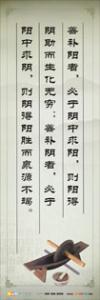 善补阳者，必于阴中求阳，则阳得
阴助而生化无穷；善补阴者，必于
阳中求阴，则阴得阳胜而泉源不竭。